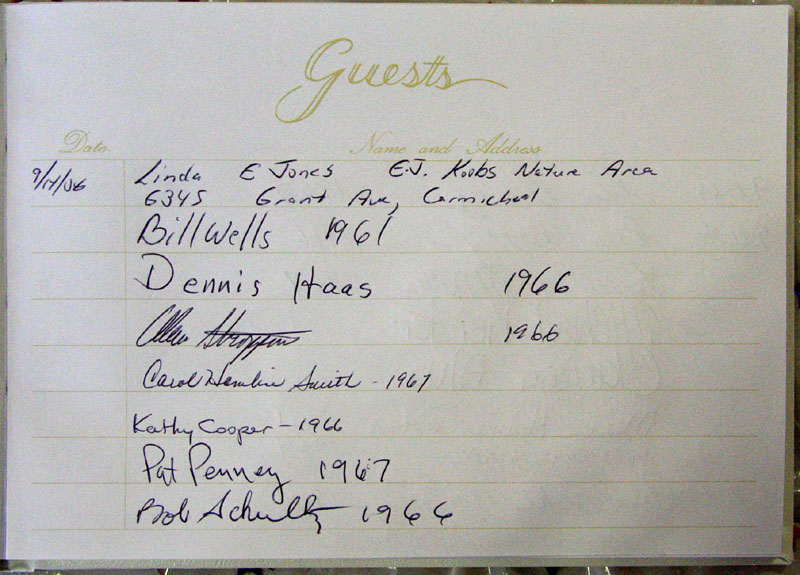 Guests
Date Name and Address
9/17/06 Linda E Jones E.J. Koobs Nature Area
6345 Grant Ave, Carmichael
Bill Wells 1961
Dennis Haas 1966
1966
Carol Hamline Smith - 1967
Kathy Cooper - 1966
Pat Penney 1967
Bob Schultz 1966